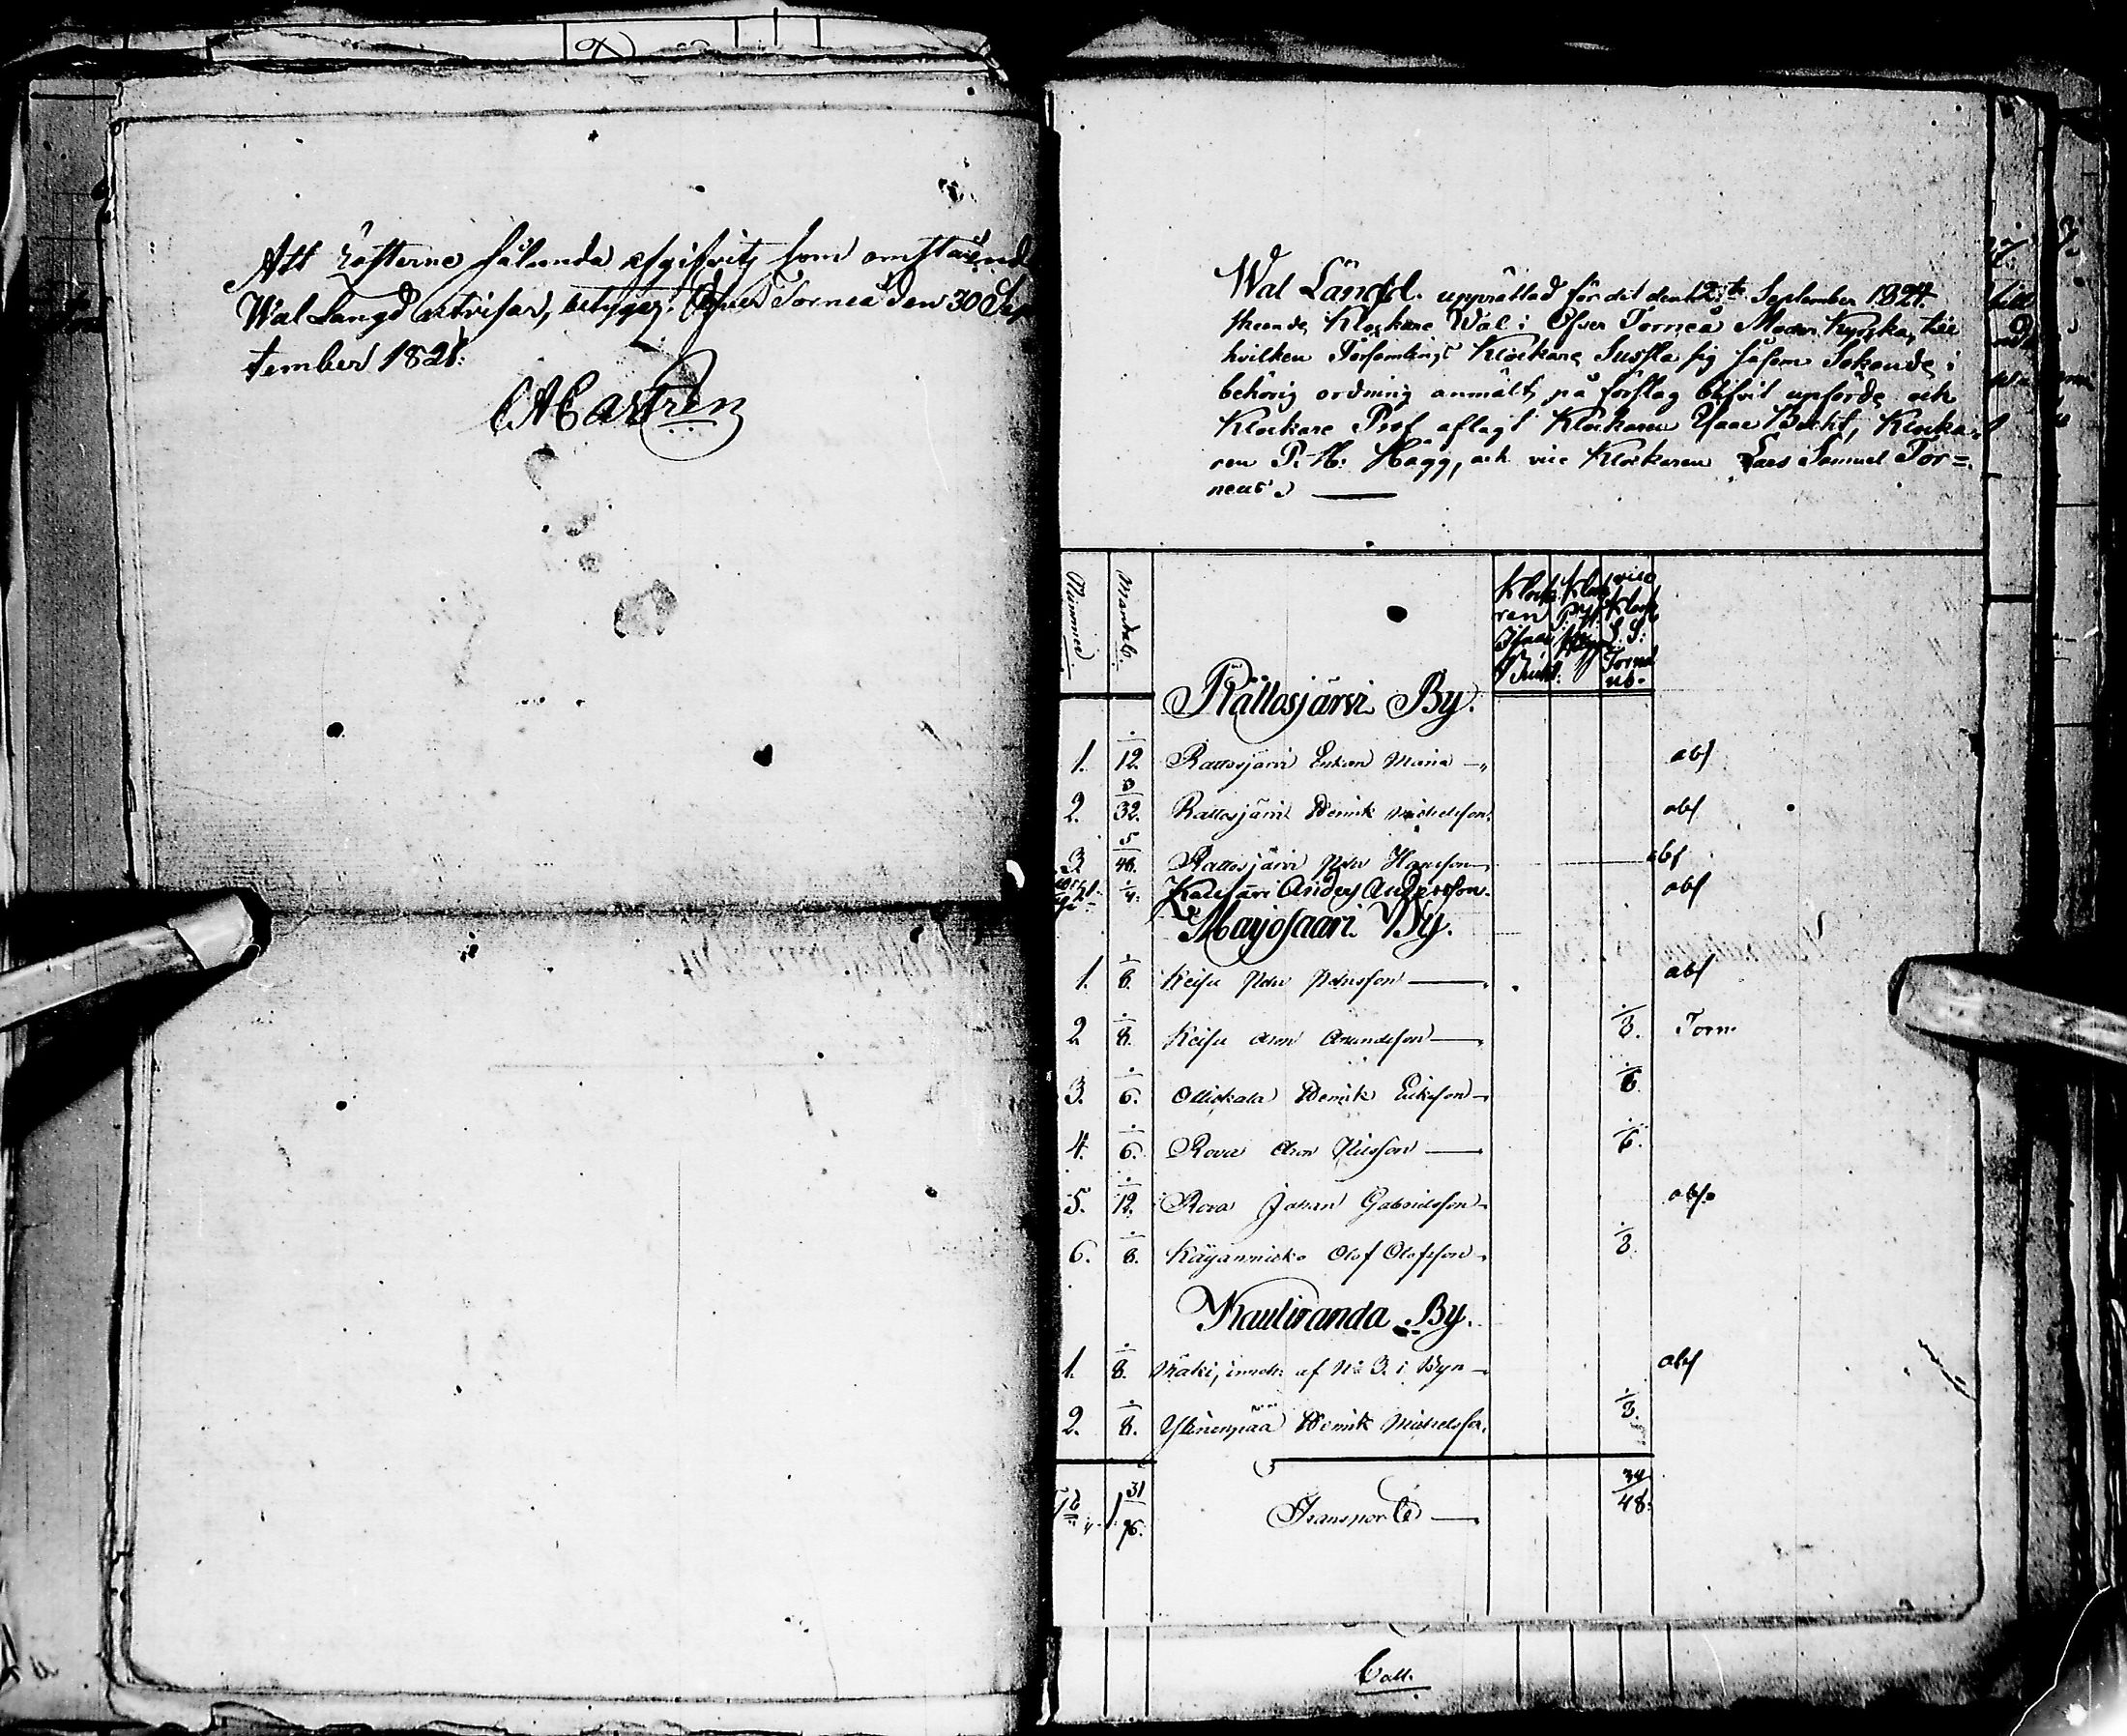 Att rösterne sålunda afgifvits som omstående
Wal Längd utvisar, betygas. Öfver Torneå den 30 Sep
tember 1821.
Castrén
Wal Längd upprättad för det den September 1821
skeende Klockare Wal i Öfver Torneå Moder Kyrka, till
hvilken Församlings Klockare Syssla sig såsom Sökande i
behörig ordning anmält, på förslag blifvit upförde och
Klockare Prof aflagt Klockaren Isaac Bucht, Klocka-
ren P. H. Hägg, och vice Klockaren Lars Samuel Tor=
neus.
Nummer. Mantal. Klocka ren Isaac Bucht. Klock. P. H. Hägg vice Klock. L. S. Torne us.
Rättosjärvi By.
1. 1/12. Rattosjärvi Enkan Maria abs
2. 3/32. Rattosjärvi Henrik Michelsson abs
3 5/48. Rattosjärvi Peter Hansson abs
1/4. Anders Andersson abs
Marjosaari By.
1. 1/8. Keisu Peter Petersson abs
2 1/8. Keisu Aron Amundsson 1/8. Torn.
3. 1/6. Olliskala Henrik Eriksson 1/6.
4. 1/6. Rova Aron Nilsson 1/6.
5. 1/12. Rova Johan Gabrielsson abs.
6. 1/8. Olof Olofsson 1/8.
Kauliranda By.
1. 1/8. Mäki, inneh. af No 3. i Byn abs
2. 1/8. Ylinenpää Henrik Michelsson 1/8.
1 31/96. Transport 34/48.
Catt.